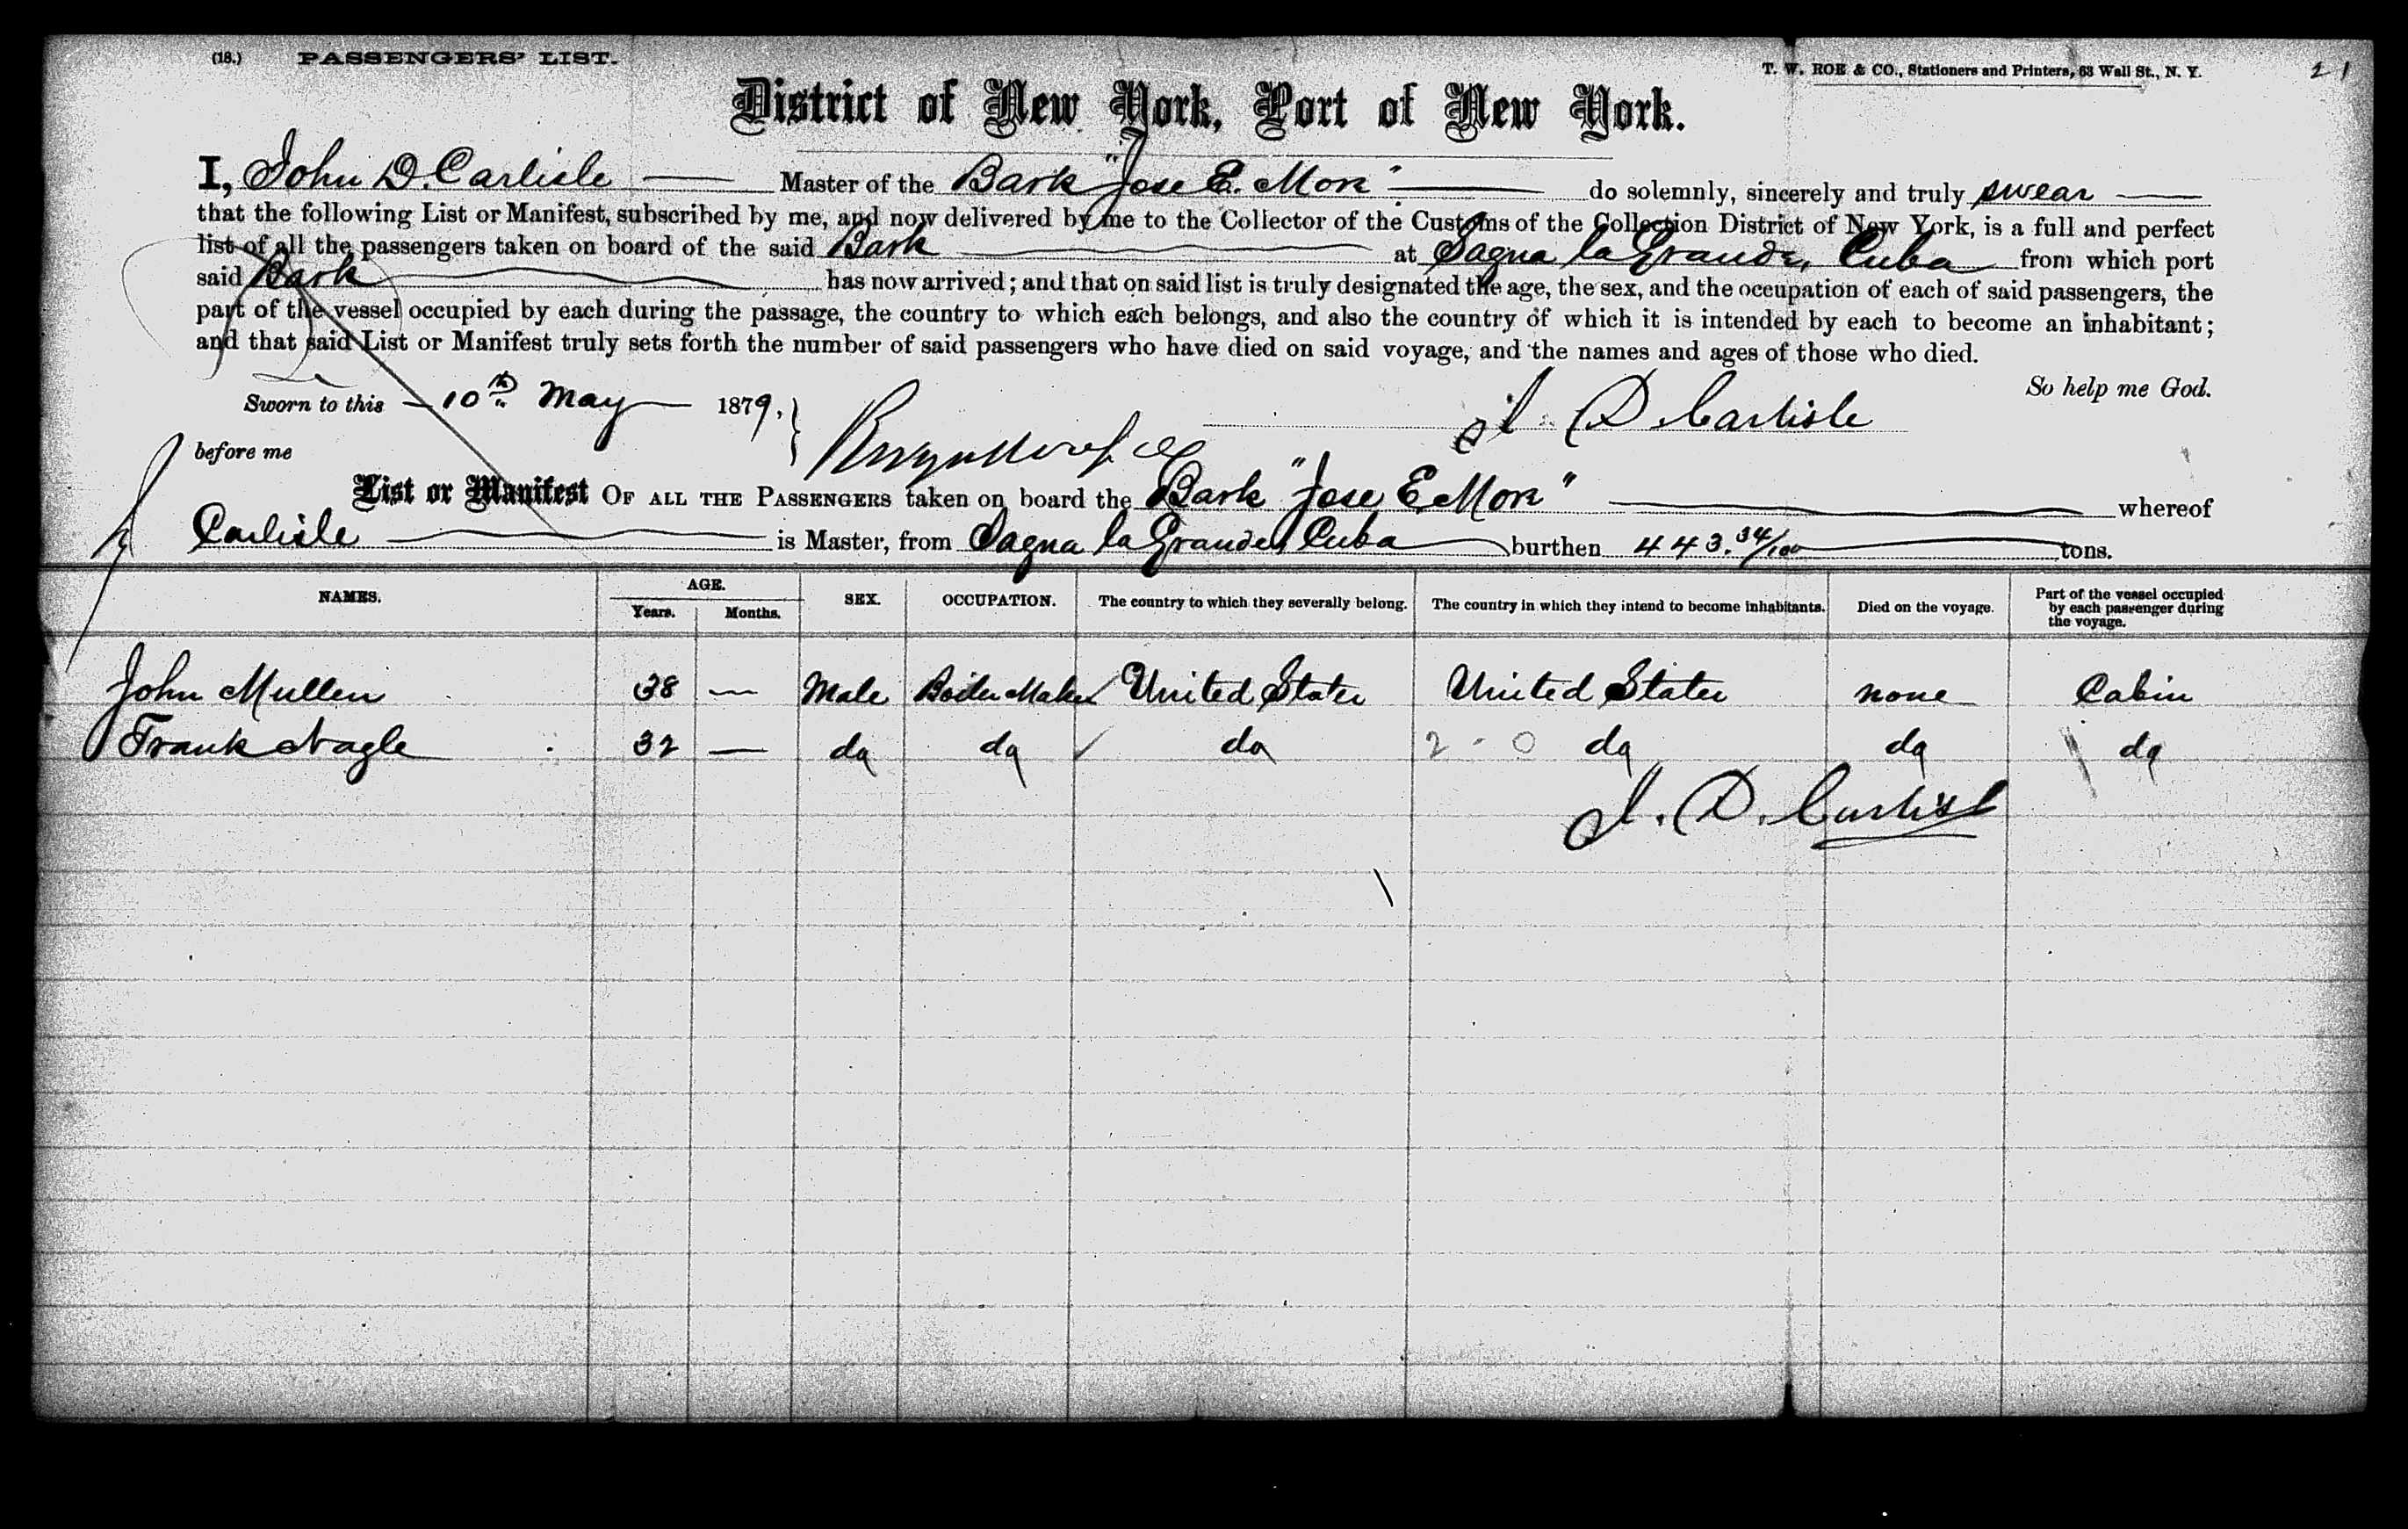 (18.) PASSENGERS' LIST.
T. W. ROE & CO., Stationers and Printers, 63 Wall St., N. Y.
21
District of New York, Port of New York.
I, John D. Carlisle Master of the Bark "Jose E. More" do solemnly, sincerely and truly swear
that the following List or Manifest, subscribed by me, and now delivered by me to the Collector of the Customs of the Collection District of New York, is a full and perfect
list of all the passengers taken on board of the said Bark at Sagua la Grande, Cuba from which port
said Bark has now arrived; and that on said list is truly designated the age, the sex, and the occupation of each of said passengers, the
part of the vessel occupied by each during the passage, the country to which each belongs, and also the country of which it is intended by each to become an inhabitant;
and that said List or Manifest truly sets forth the number of said passengers who have died on said voyage, and the names and ages of those who died.
So help me God.
Sworn to this 10th May 1879, J. D. Carlisle
before me
List or Manifest OF ALL THE PASSENGERS taken on board the Bark "Jose E. More" whereof
Carlisle is Master, from Sagua la Grande, Cuba burthen 443.34/100 tons.
NAMES. AGE. Years. Months. SEX. OCCUPATION. The country to which they severally belong. The country in which they intend to become inhabitants. Died on the voyage. Part of the vessel occupied by each passenger during the voyage.
John Mullen 38 — Male Boiler Maker United States United States none Cabin
Frank Nagle 32 — do do do 2 - 0 do do do
J. D. Carlisle